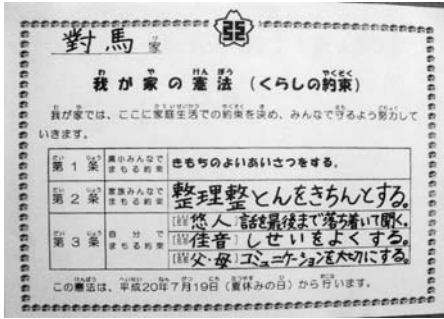 對馬 家
我が家の憲法（くらしの約束）
我が家では、ここに家庭生活での約束を決め、みんなで守るよう努力して
いきます。
第1条 異小みんなで まもる約束 きもちのよいあいさつをする。
第2条 家族みんなで まもる約束 整理整とんをきちんとする。
第3条 自分で まもる約束
悠人 話を最後まで落ち着いて聞く。
佳音 しせいをよくする。
父・母 コミュニケーションを大切にする。
この憲法は、平成20年7月19日（夏休みの日）から行います。